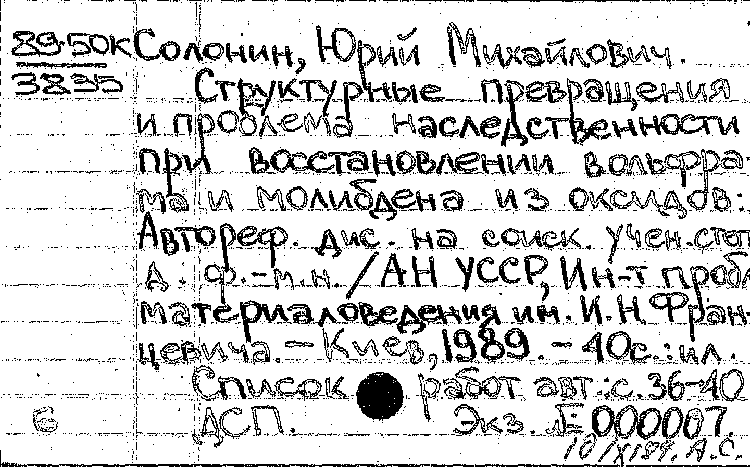 89-50К Солонин, Юрий Михайлович.
3835 Структурные превращения
и проблема наследственности
при восстановлении вольфра-
ма и молибдена из оксидов:
Автореф. дис. на соиск. учен. степ
д. ф.-м.н. / АН УССР, Ин-т пробл
материаловедения им. И.Н. Фран-
цевича. - Киев, 1989. - 40с.: ил.
Список работ авт.: с. 36-40
6 ДСП. Экз. № 000007.
10/XI89. А.С.